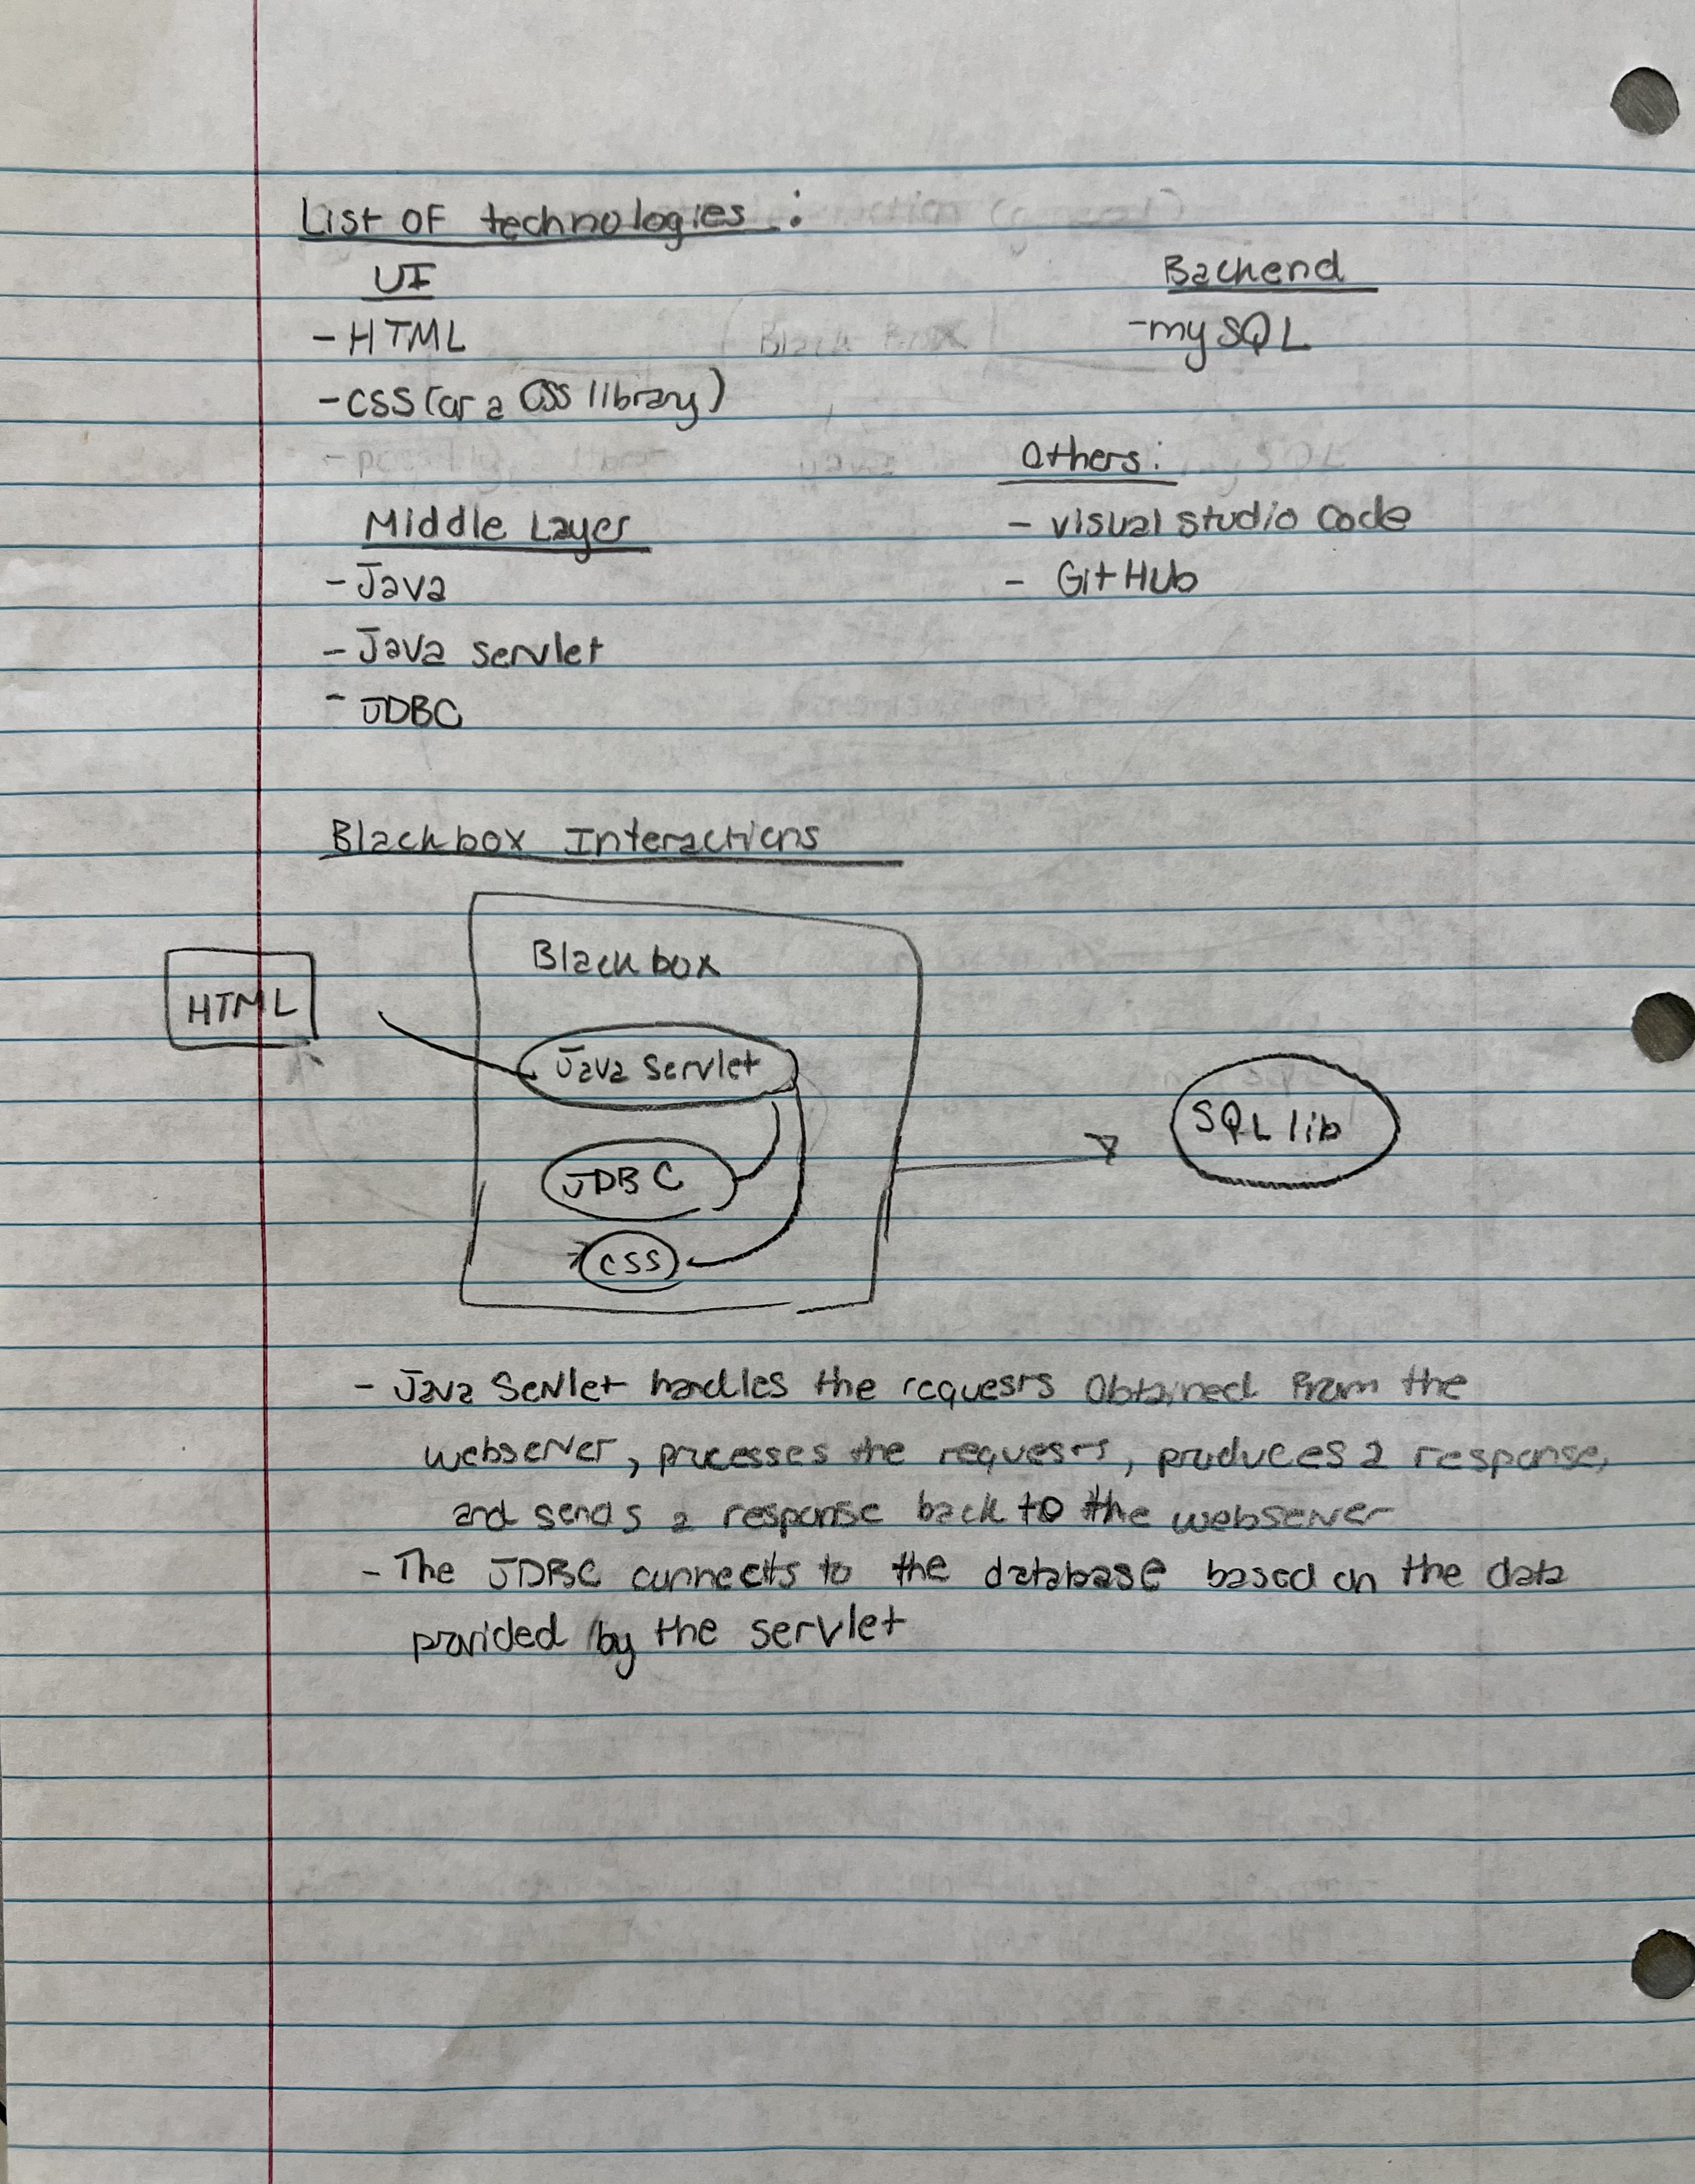 List OF technologies :
UI
- HTML
- CSS (or a CSS library)
Backend
- mySQL
Others:
- visual studio code
- GitHub
Middle Layer
- Java
- Java servlet
- JDBC
Blackbox Interactions
HTML
Blackbox
Java Servlet
JDBC
CSS
SQL lib
- Java Servlet handles the requests Obtained from the
webserver, processes the requests, produces a response,
and sends a response back to the webserver
- The JDBC connects to the database based on the data
provided by the servlet